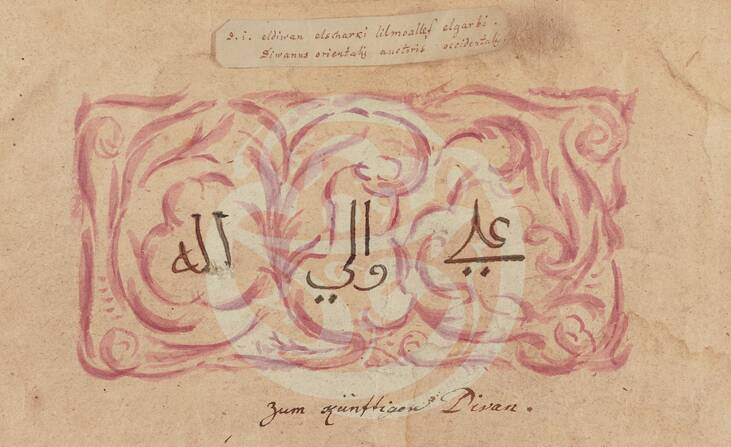 D. i. eldiwan elscharki lilmoallef elgarbi.
Diwanus orientalis auctoris occidentalis
علي والي الله
zum künftigen Divan.